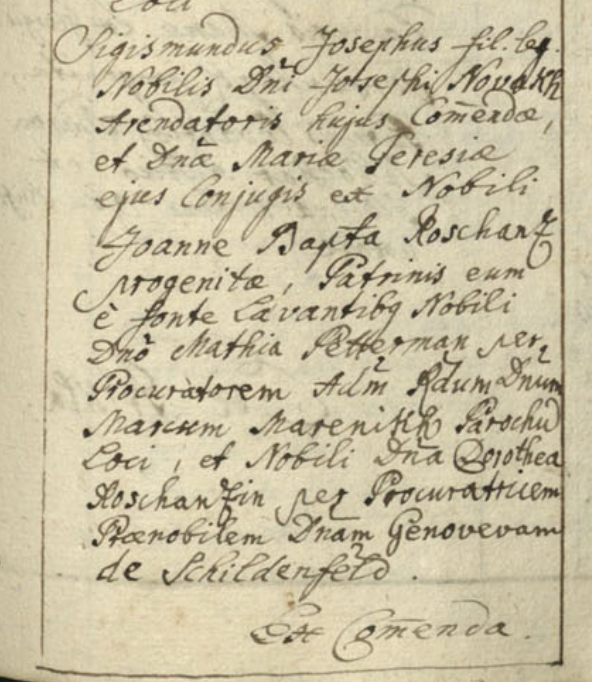 Loci
Sigismundus Josephus fil. leg.
Nobilis Dni Josephi Novakh
Arendatoris hujus Comendæ,
et Dnæ Mariæ Teresiæ
ejus Conjugis ex Nobili
Joanne Bapta Roschanz
progenitæ, Patrinis eum
è fonte Lavantibq Nobili
Dnō Mathia Petterman per
Procuratorem Adm̄ Rdum Dnum
Marcum Marenikh Parochū
Loci, et Nobili Dna Dorothea
Roschanzin per Procuratricem
Prænobilem Dnam Genovevam
de Schildenfeld.
Ex Com̄enda.